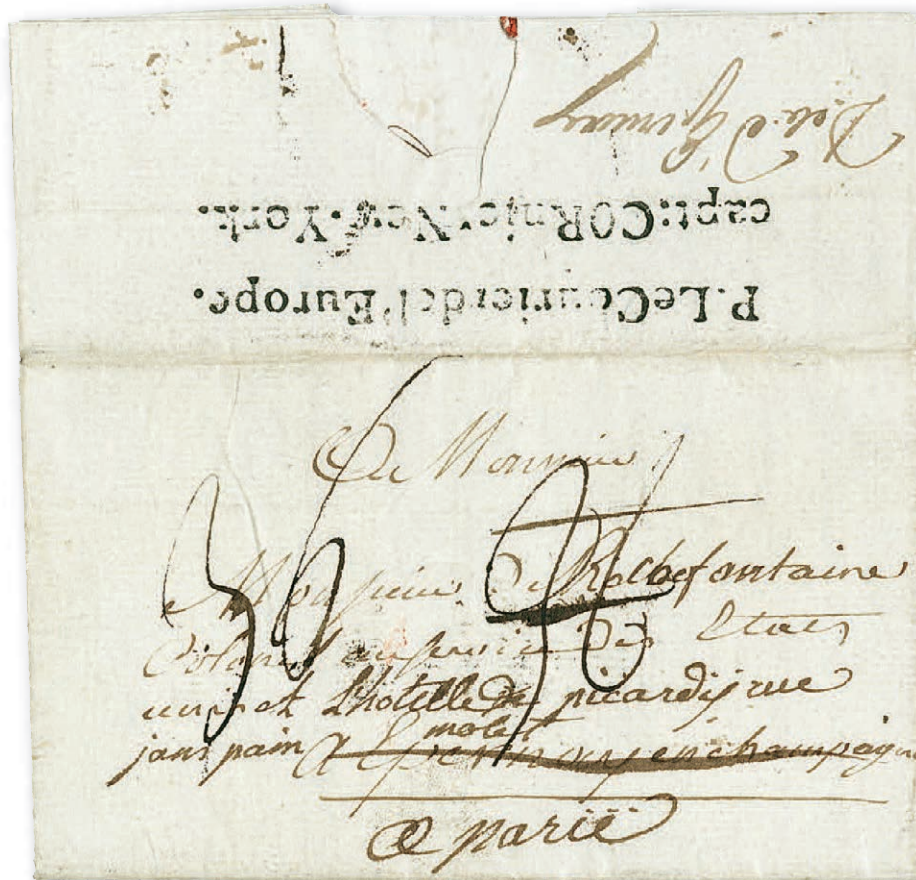 De la D'Epernay
P. Le Courier del'Europe.
capt: CORnic New-York.
A Monsieur
Monsieur De Rochefontaine
Colonel au service Des Etats
unis et Lhotelle De picardij rue
jans pain molet
A Epernay en champagne
a parie